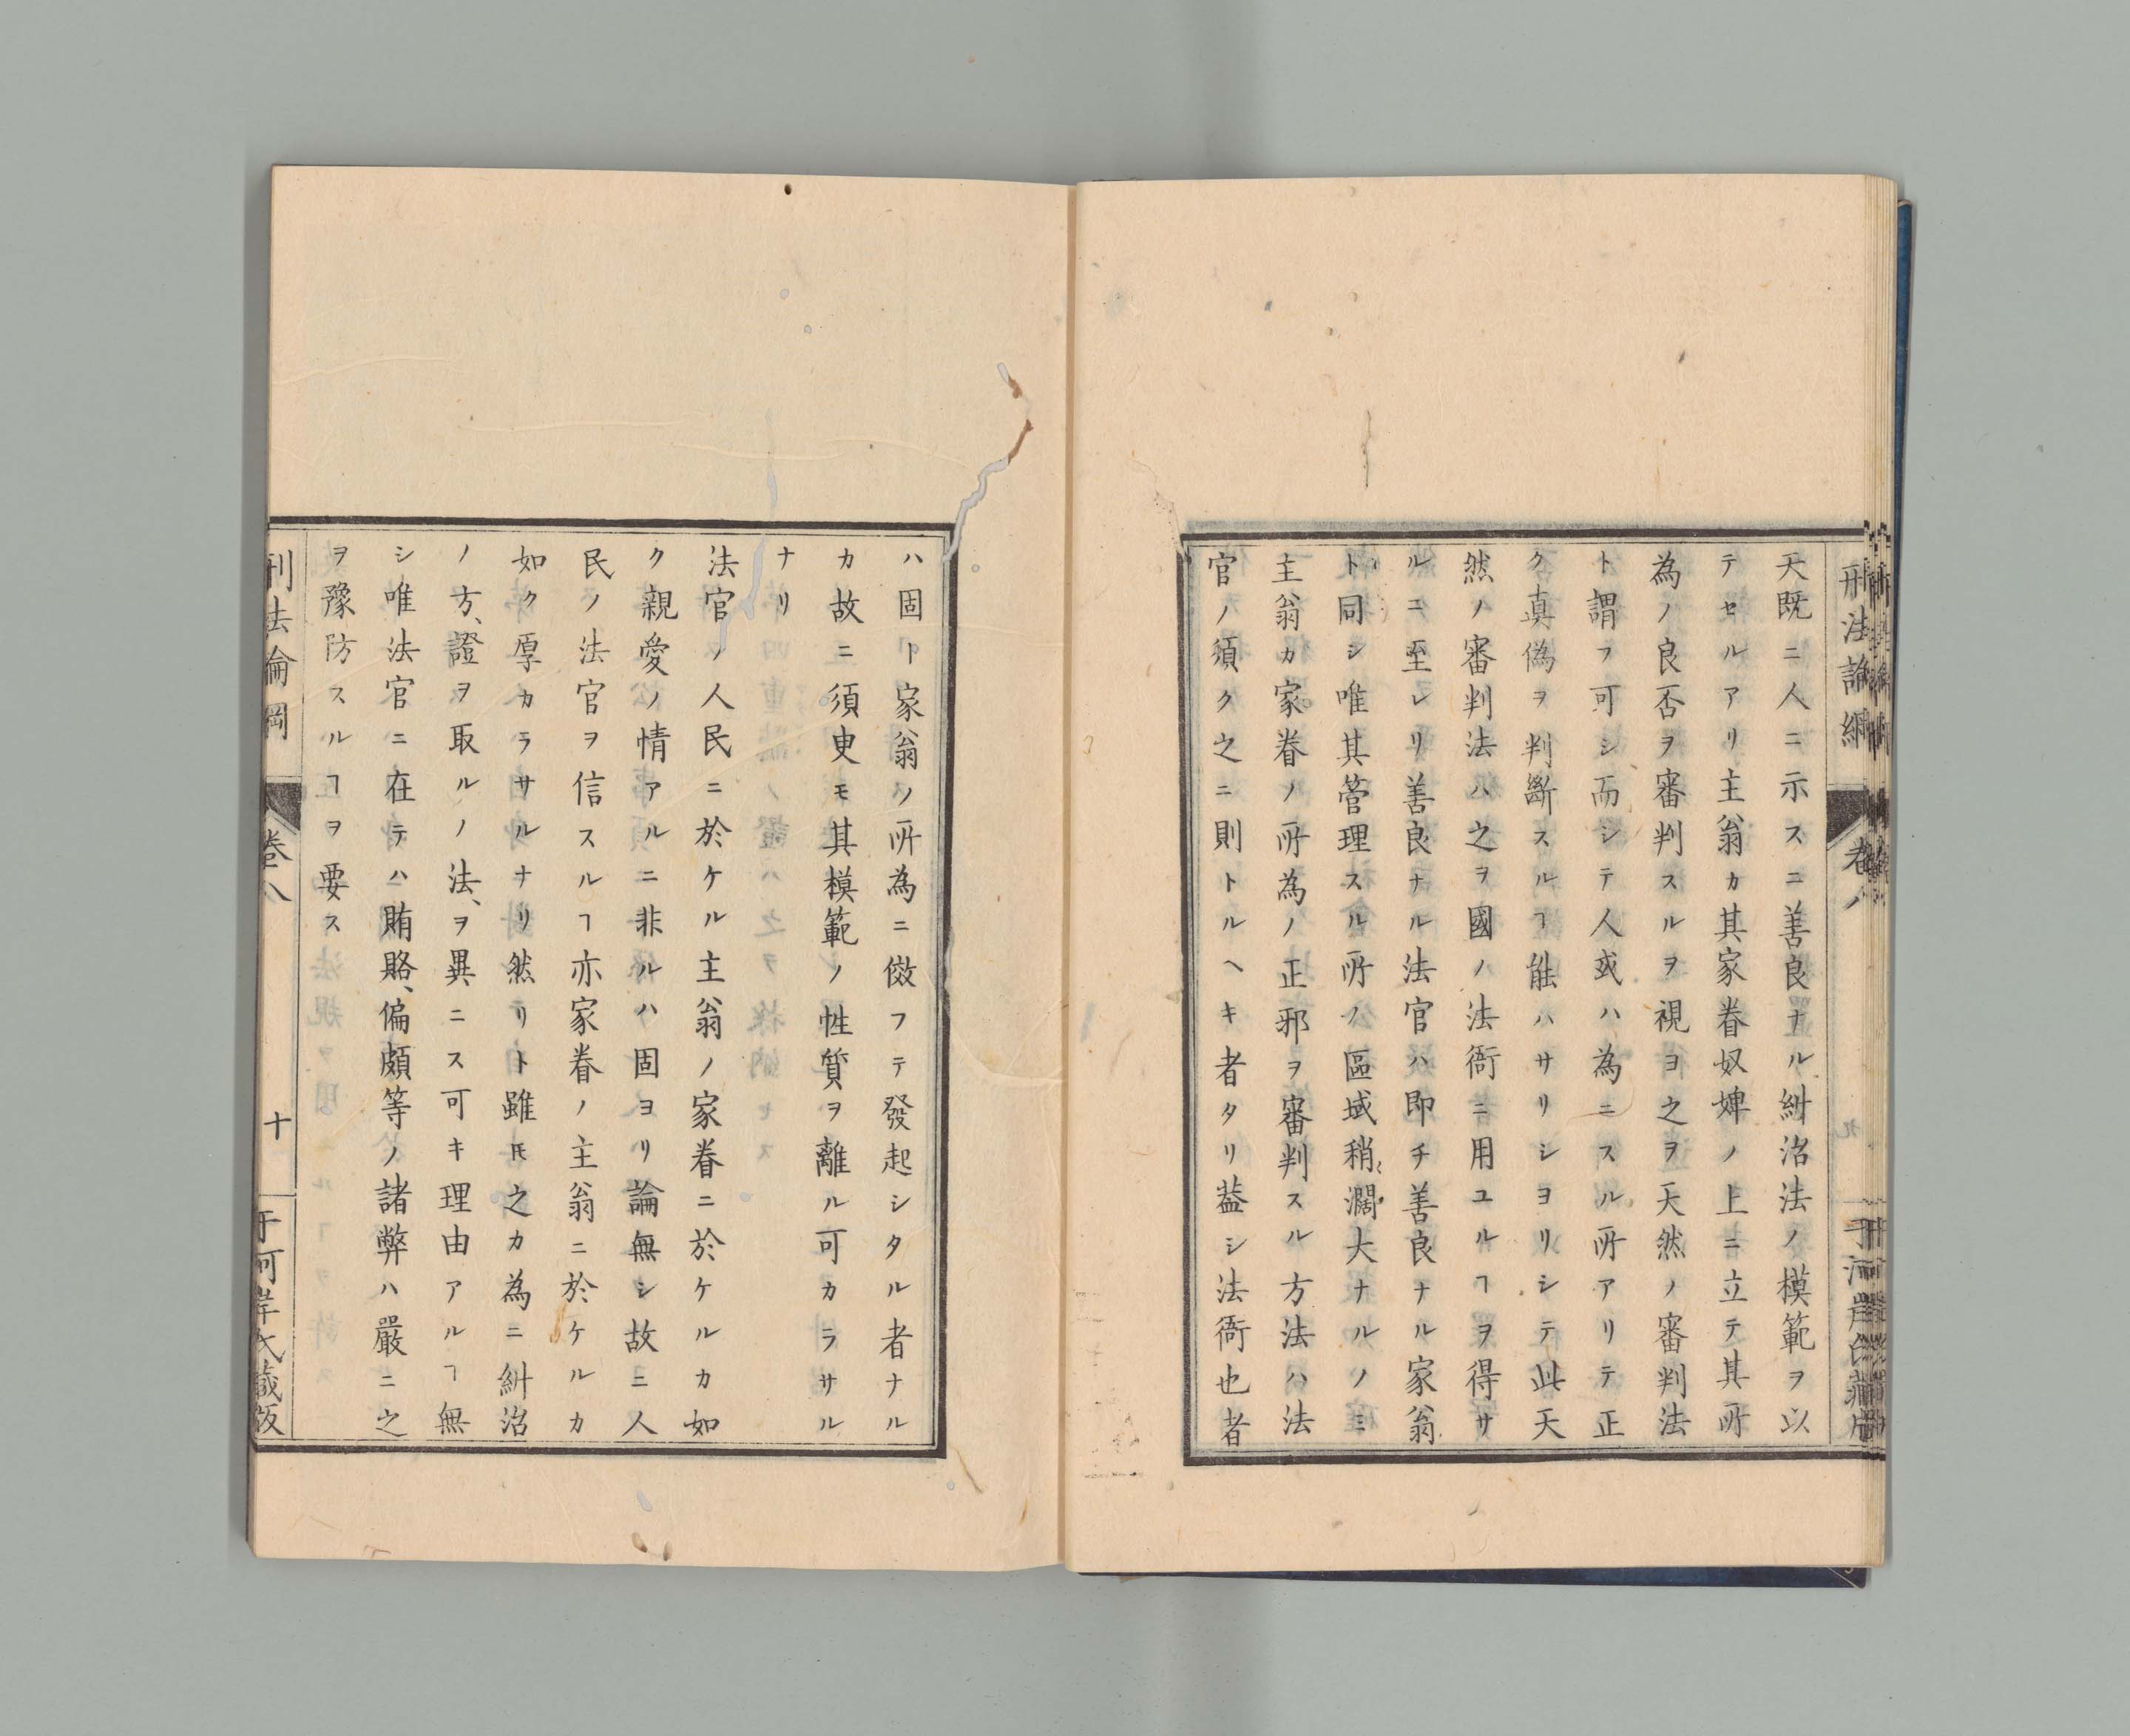 刑法論綱
卷八
于河岸氏藏版
天既ニ人ニ示スニ善良ナル糾治法ノ模範ヲ以
テセルアリ主翁カ其家眷奴婢ノ上ニ立テ其所
為ノ良否ヲ審判スルヲ視ヨ之ヲ天然ノ審判法
ト謂フ可シ而シテ人或ハ為ニスル所アリテ正
ク真偽ヲ判斷スルヿ能ハサリシヨリシテ此天
然ノ審判法ハ之ヲ國ノ法衙ニ用ユルヿヲ得サ
ルニ至レリ善良ナル法官ハ即チ善良ナル家翁
ト同シ唯其管理スル所ノ區域稍濶大ナルノミ
主翁カ家眷ノ所為ノ正邪ヲ審判スル方法ハ法
官ノ須ク之ニ則トルヘキ者タリ葢シ法衙也者
ハ固ト家翁ノ所為ニ倣フテ發起シタル者ナル
カ故ニ須臾モ其模範ノ性質ヲ離ル可カラサル
ナリ
法官ノ人民ニ於ケル主翁ノ家眷ニ於ケルカ如
ク親愛ノ情アルニ非ルハ固ヨリ論無シ故ニ人
民ノ法官ヲ信スルヿ亦家眷ノ主翁ニ於ケルカ
如ク厚カラサルナリ然リト雖𪜈之カ為ニ糾治
ノ方、證ヲ取ルノ法、ヲ異ニス可キ理由アルヿ無
シ唯法官ニ在テハ賄賂、偏頗等ノ諸弊ハ嚴ニ之
ヲ豫防スルヿヲ要ス
刑法論綱
卷八
十
于河岸氏藏版